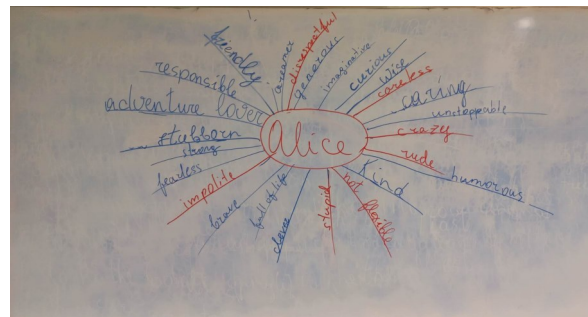 Alice
friendly
dreamer
disrespectful
generous
imaginative
curious
wise
careless
caring
unstoppable
crazy
rude
humorous
kind
not flexible
stupid
clever
full of life
brave
impolite
fearless
strong
stubborn
adventure lover
responsible